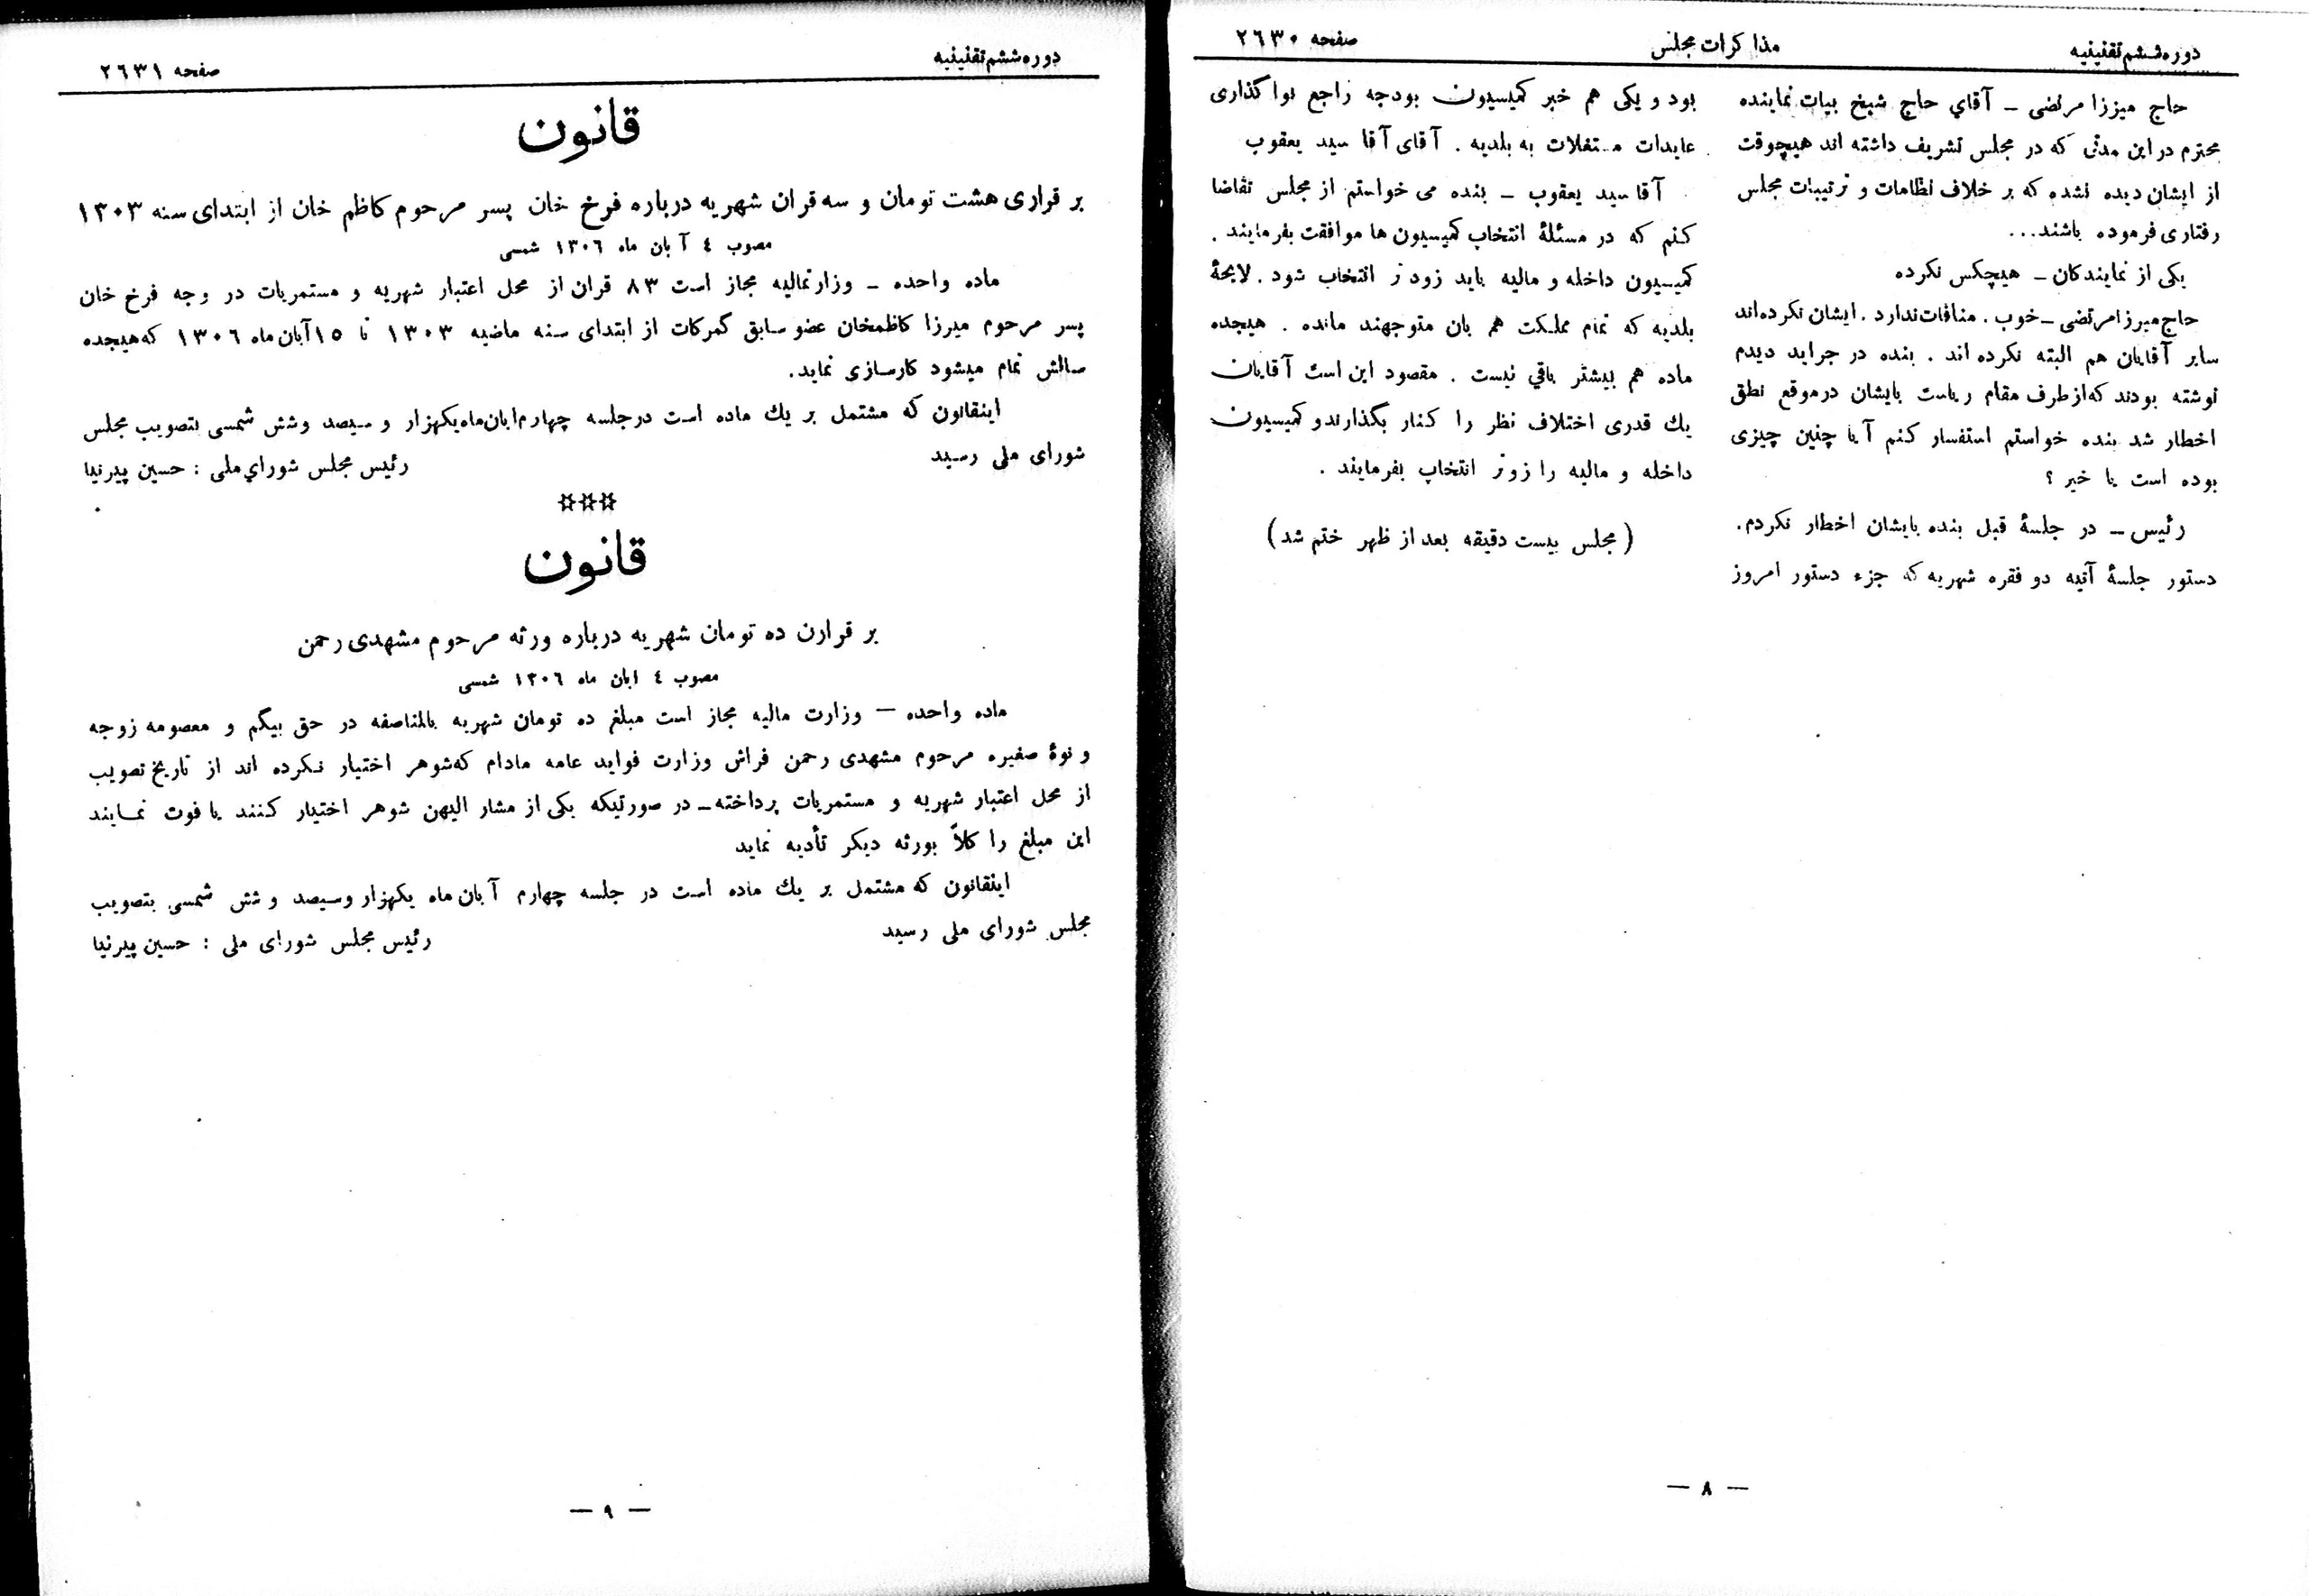 دوره ششم تقنینیه
مذاکرات مجلس
صفحه ۲۶۳۰
حاج میرزا مرتضی ـ آقای حاج شیخ بیات نماینده
محترم در این مدتی که در مجلس تشریف داشته اند هیچوقت
از ایشان دیده نشده که بر خلاف نظامات و ترتیبات مجلس
رفتاری فرموده باشند...
یکی از نمایندکان ـ هیچکس نکرده
حاج میرزا مرتضی ـ خوب . منافات ندارد . ایشان نکرده‌اند
سایر آقایان هم البته نکرده اند . بنده در جراید دیدم
نوشته بودند که از طرف مقام ریاست بایشان در موقع نطق
اخطار شد بنده خواستم استفسار کنم آیا چنین چیزی
بوده است یا خیر ؟
رئیس ـ در جلسهٔ قبل بنده بایشان اخطار نکردم .
دستور جلسهٔ آتیه دو فقره شهریه که جزء دستور امروز
بود و یکی هم خبر کمیسیون بودجه راجع بوا گذاری
عایدات مستغلات به بلدیه . آقای آقا سید یعقوب
آقا سید یعقوب ـ بنده می خواستم از مجلس تقاضا
کنم که در مسئلهٔ انتخاب کمیسیون ها موافقت بفرمایند .
کمیسیون داخله و مالیه باید زود تر انتخاب شود . لایحهٔ
بلدیه که تمام مملکت هم بان متوجهند مانده . هیجده
ماده هم بیشتر باقی نیست . مقصود این است آقایان
یك قدری اختلاف نظر را کنار بگذارند و کمیسیون
داخله و مالیه را زوتر انتخاب بفرمایند .
(مجلس بیست دقیقه بعد از ظهر ختم شد)
— ۸ —
دوره ششم تقنینیه
صفحه ۲۶۳۱
قانون
بر قراری هشت تومان و سه قران شهریه درباره فرخ خان پسر مرحوم کاظم خان از ابتدای سنه ۱۳۰۳
مصوب ٤ آبان ماه ۱۳۰٦ شمسی
ماده واحده ـ وزارتمالیه مجاز است ۸۳ قران از محل اعتبار شهریه و مستمریات در وجه فرخ خان
پسر مرحوم میرزا کاظمخان عضو سابق گمرکات از ابتدای سنه ماضیه ۱۳۰۳ تا ۱٥ آبان ماه ۱۳۰٦ که هیجده
سالش تمام میشود کارسازی نماید.
اینقانون که مشتمل بر یك ماده است در جلسه چهارم ابان‌ماه یکهزار و سیصد و شش شمسی بتصویب مجلس
شورای ملی رسید
رئیس مجلس شورای ملی : حسین پیرنیا
***
قانون
بر قرارن ده تومان شهریه درباره ورثه مرحوم مشهدی رحمن
مصوب ٤ ابان ماه ۱۳۰٦ شمسی
ماده واحده — وزارت مالیه مجاز است مبلغ ده تومان شهریه بالمناصفه در حق بیگم و معصومه زوجه
و نوهٔ صغیره مرحوم مشهدی رحمن فراش وزارت فواید عامه مادام که شوهر اختیار نکرده اند از تاریخ تصویب
از محل اعتبار شهریه و مستمریات پرداخته ـ در صورتیکه یکی از مشار الیهن شوهر اختیار کنند یا فوت نمایند
این مبلغ را کلاً بورثه دیکر تأدیه نماید
اینقانون که مشتمل بر یك ماده است در جلسه چهارم آبان ماه یکهزار وسیصد و شش شمسی بتصویب
مجلس شورای ملی رسید
رئیس مجلس شورای ملی : حسین پیرنیا
— ۹ —